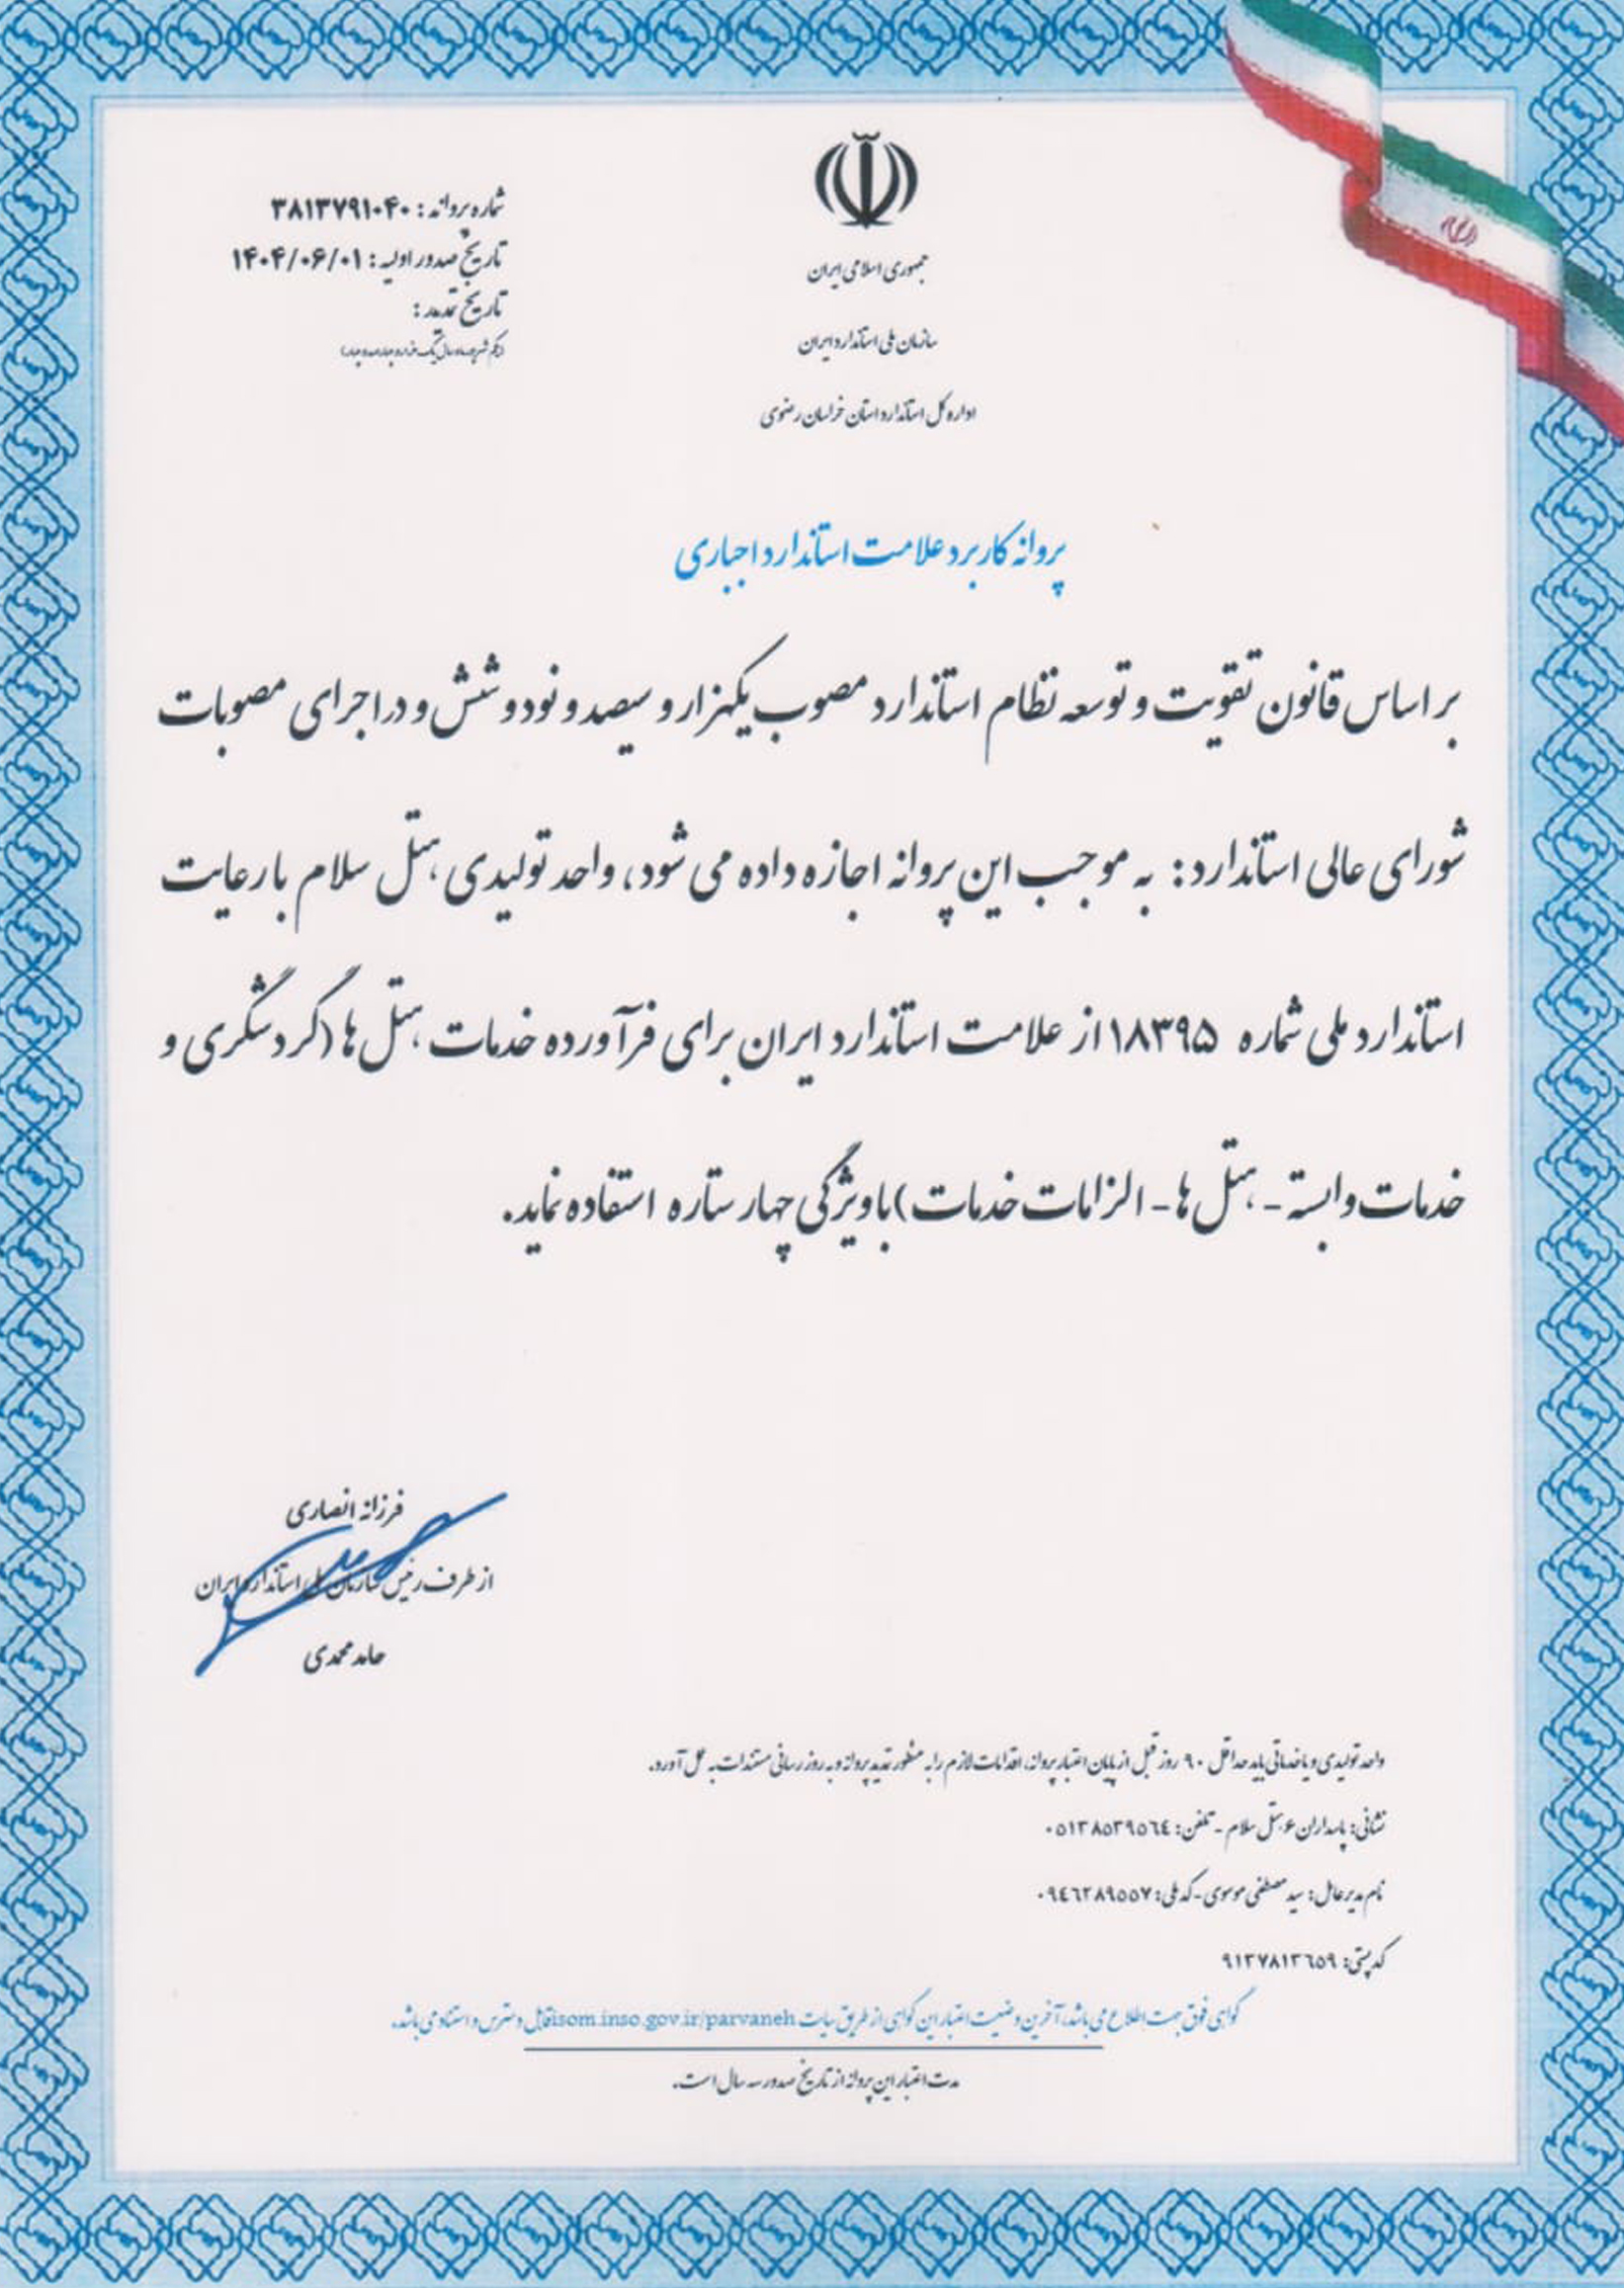 جمهوری اسلامی ایران
سازمان ملی استاندارد ایران
اداره کل استاندارد استان خراسان رضوی
شماره پروانه : ۳۸۱۳۷۹۱۰۴۰
تاریخ صدور اولیه : ۱۴۰۴/۰۶/۰۱
تاریخ تمدید :
(یکم شهریور ماه سال یک هزار و چهارصد و چهار)
پروانه کاربرد علامت استاندارد اجباری
بر اساس قانون تقویت و توسعه نظام استاندارد مصوب یکهزار و سیصد و نود و شش و در اجرای مصوبات
شورای عالی استاندارد: به موجب این پروانه اجازه داده می شود، واحد تولیدی ، هتل سلام با رعایت
استاندارد ملی شماره ۱۸۳۹۵ از علامت استاندارد ایران برای فرآورده خدمات ، هتل ها (گردشگری و
خدمات وابسته - ، هتل ها - الزامات خدمات) با ویژگی چهار ستاره استفاده نماید.
فرزانه انصاری
از طرف رئیس سازمان ملی استاندارد ایران
حامد محمدی
واحد تولیدی و یا خدماتی باید حداقل ۹۰ روز قبل از پایان اعتبار پروانه، اقدامات لازم را به منظور تمدید پروانه و به روز رسانی مستندات به عمل آورد.
نشانی: پاسداران ۶ هتل سلام - تلفن: ۰۵۱۳۸۵۳۹۵٦٤
نام مدیرعامل: سید مصطفی موسوی - کد ملی: ۰۹٤٦۲۸۹۵۵۷
کد پستی: ۹۱۳۷۸۱۳٦۵۹
گواهی فوق جهت اطلاع می باشد، آخرین وضعیت اعتبار این گواهی از طریق سایت isom.inso.gov.ir/parvaneh قابل دسترس و استناد می باشد.
مدت اعتبار این پروانه از تاریخ صدور سه سال است.